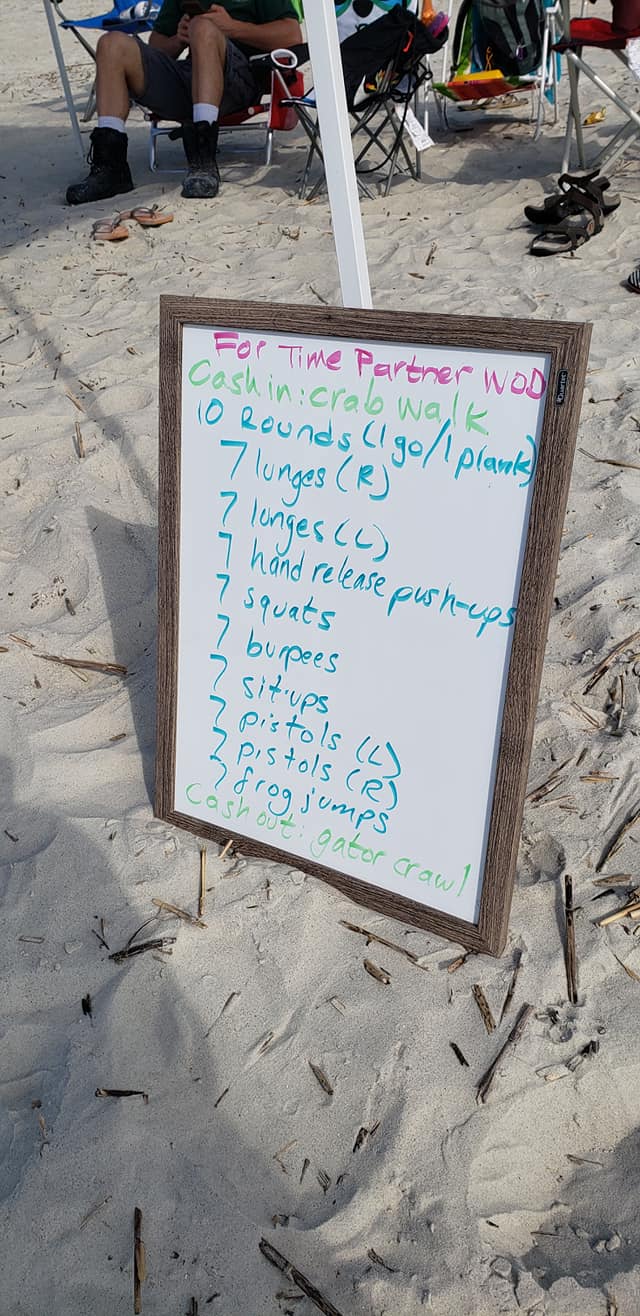 For Time Partner WOD
Cash in: crab walk
10 Rounds (1 go/1 plank)
7 lunges (R)
7 lunges (L)
7 hand release push-ups
7 squats
7 burpees
7 sit-ups
7 pistols (L)
7 pistols (R)
7 frog jumps
Cash out: gator crawl